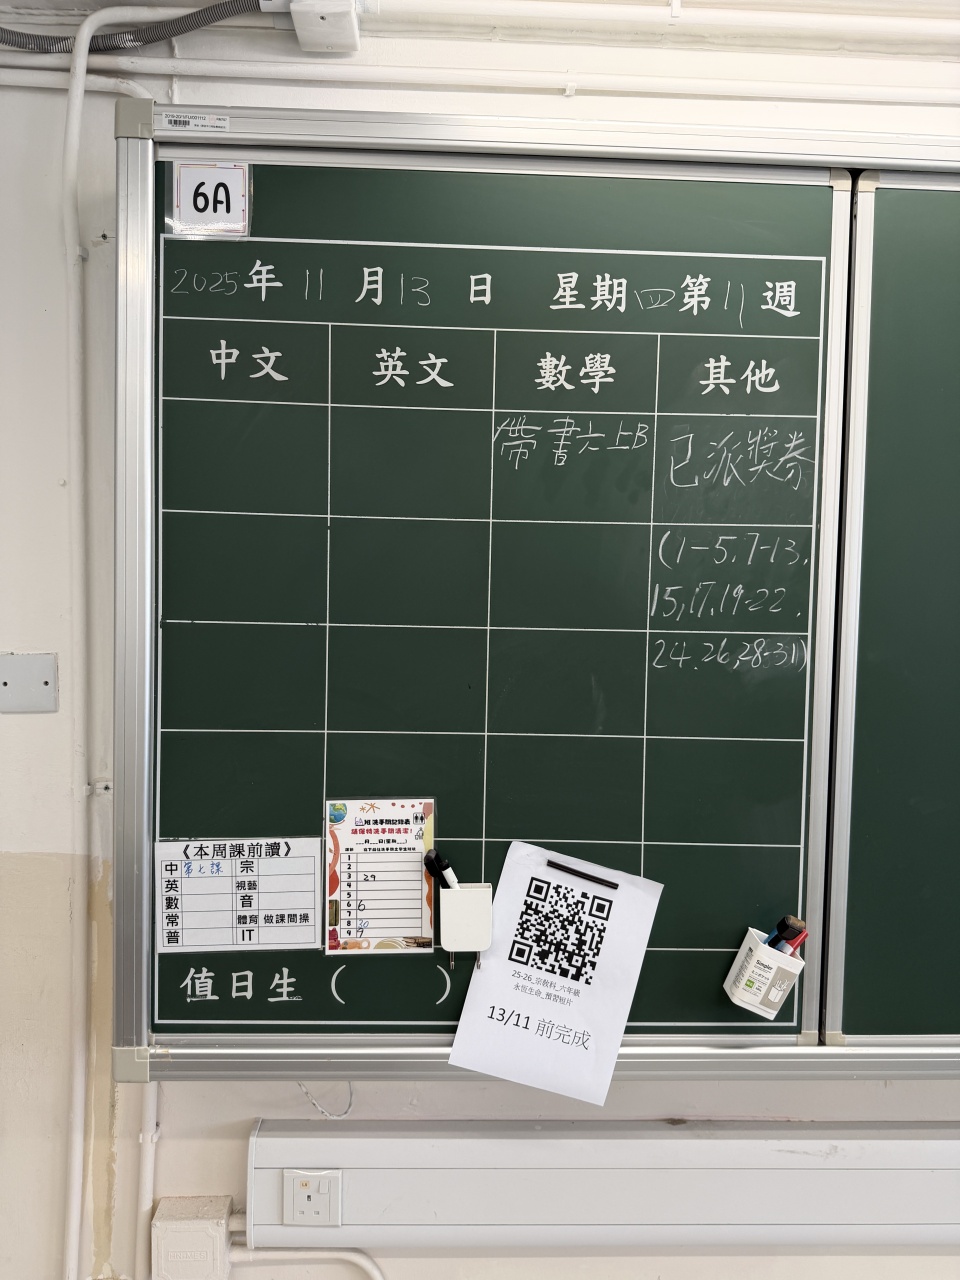 6A
2025年 11 月 13 日 星期四第 11 週
中文 英文 數學 其他
帶書六上B
已派獎券
(1-5,7-13,
15,17,19-22,
24,26,28-31)
《本周課前讀》
中 第七課 宗
英 視藝
數 音
常 體育 做課間操
普 IT
請保持洗手間清潔!
1
2
3 29
4
5
6 6
7
8 30
9 7
值日生 ( )
25-26_宗教科_六年級
永恆生命_預習短片
13/11 前完成
Simpler